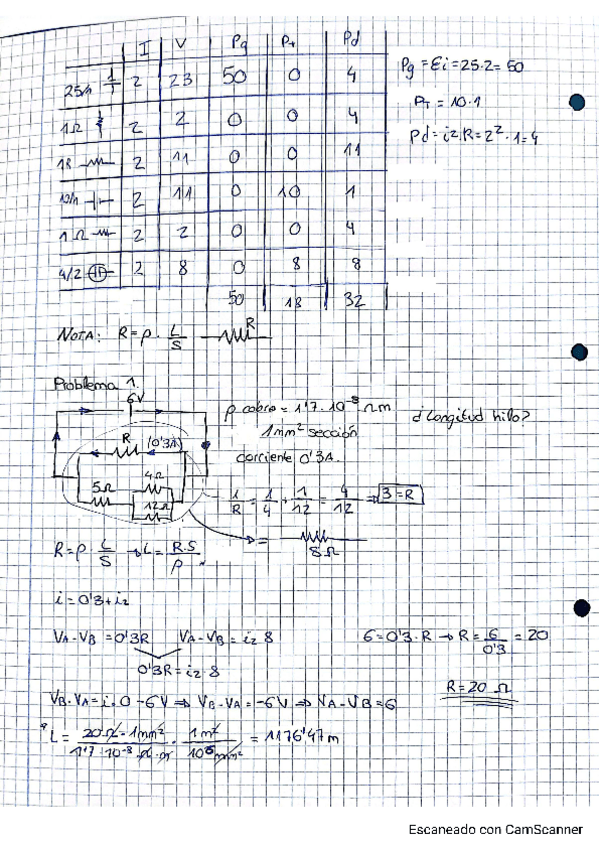 I V Pg PT Pd
25/1 2 23 50 0 4
1Ω 2 2 0 0 4
2 11 0 0 11
2 11 0 10 1
1Ω 2 2 0 0 4
4/2 2 8 0 8 8
50 18 32
Pg = Ei = 25·2 = 50
PT = 10·1
Pd = i2·R = 2²·1 = 4
NOTA: R = ρ · L/S R
Problema 1.
6V
R (0'3A)
4Ω
5Ω
12Ω
ρ cobre = 1'7·10⁻⁸ Ωm
1mm² sección
corriente 0'3A.
¿Longitud hilo?
1/R = 1/4 + 1/12 = 4/12 ⇒ 3 = R
= 8Ω
R = ρ · L/S → L = R·S/ρ
i = 0'3 + i2
VA - VB = 0'3R VA - VB = i2 8
6 = 0'3·R → R = 6/0'3 = 20
0'3R = i2·8
R = 20 Ω
VB - VA = i·0 - 6V ⇒ VB - VA = -6V ⇒ VA - VB = 6
L = 20Ω · 1mm² / 1'7·10⁻⁸ Ω·m · 1m² / 10⁶ mm² = 1176'47m
Escaneado con CamScanner